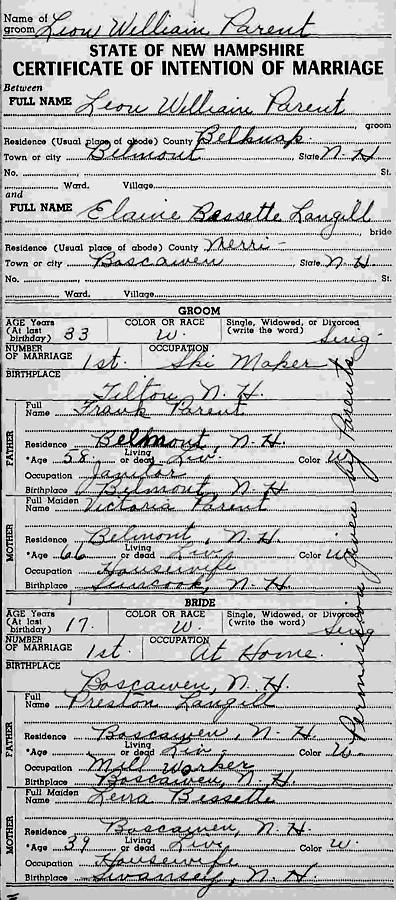 Name of groom Leon William Parent
STATE OF NEW HAMPSHIRE
CERTIFICATE OF INTENTION OF MARRIAGE
Between
FULL NAME Leon William Parent
groom
Residence (Usual place of abode) County Belknap
Town or city Belmont State N. H
No. St.
Ward. Village
and
FULL NAME Elaine Bessette Langill
bride
Residence (Usual place of abode) County Merri-
Town or city Boscawen State N. H
No. St.
Ward. Village
GROOM
AGE Years (At last birthday) 33 COLOR OR RACE W. Single, Widowed, or Divorced (write the word) Sing
NUMBER OF MARRIAGE 1st. OCCUPATION Ski Maker
BIRTHPLACE Tilton, N. H.
FATHER
Full Name Frank Parent
Residence Belmont, N. H.
*Age 58 Living or dead Liv. Color W
Occupation Janitor
Birthplace Belmont, N. H
MOTHER
Full Maiden Name Victoria Parent
Residence Belmont, N. H.
*Age 66 Living or dead Liv. Color W
Occupation Housewife
Birthplace Suncook, N. H
Permission given by Parents
BRIDE
AGE Years (At last birthday) 17. COLOR OR RACE W. Single, Widowed, or Divorced (write the word) Sing
NUMBER OF MARRIAGE 1st. OCCUPATION At Home.
BIRTHPLACE Boscawen, N. H.
FATHER
Full Name Preston Langill
Residence Boscawen, N. H.
*Age Living or dead Liv. Color W.
Occupation Mill Worker
Birthplace Boscawen, N. H.
MOTHER
Full Maiden Name Lena Bessette
Residence Boscawen, N. H.
*Age 39 Living or dead Liv. Color W.
Occupation Housewife
Birthplace Swansey, N. H.